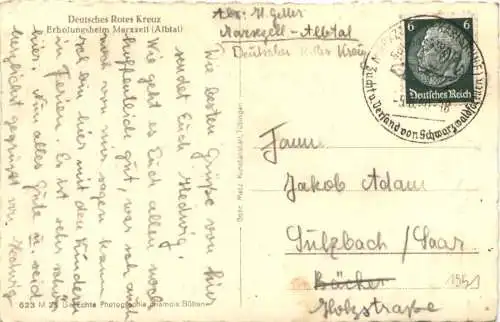 Deutsches Rotes Kreuz
Erholungsheim Marxzell (Albtal)
Abs: H. Geller
Marxzell-Albtal
Deutsches Rotes Kreuz
6 6
Deutsches Reich
Zucht u. Versand von Schwarzwaldforellen
Die besten Grüße von hier
sendet Euch Hedwig.
Wie geht es Euch allen noch
hoffentlich gut, was ich auch
von mir sagen kann.
bin hier mit den Kindern
in Ferien. Es ist sehr schön
hier. Nun alles Gute u. seid
herzlichst gegrüßt von Hedwig
Fam.
Jakob Adam
Sulzbach/Saar
Bücher
Holzstraße
1951
Gebr. Metz, Kunstanstalt, Tübingen
623 M 23 Echte Photographie